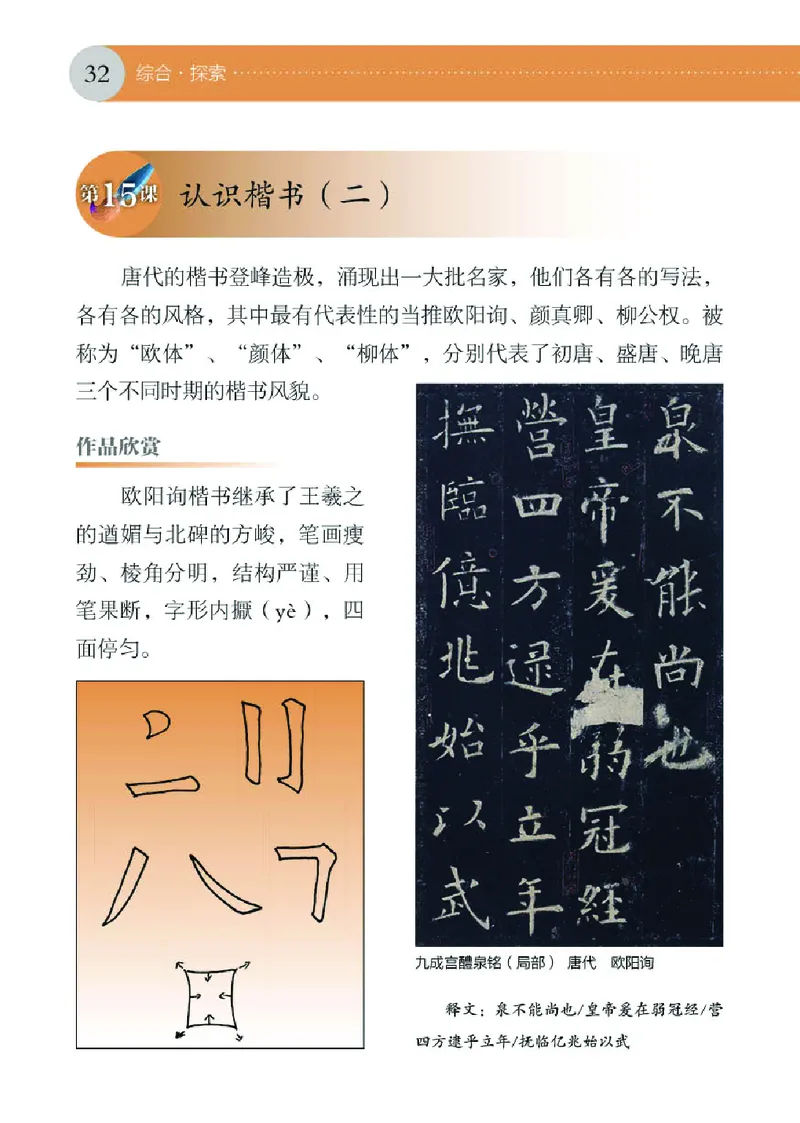 32 综合·探索
第15课 认识楷书（二）
唐代的楷书登峰造极，涌现出一大批名家，他们各有各的写法，
各有各的风格，其中最有代表性的当推欧阳询、颜真卿、柳公权。被
称为“欧体”、“颜体”、“柳体”，分别代表了初唐、盛唐、晚唐
三个不同时期的楷书风貌。
作品欣赏
欧阳询楷书继承了王羲之
的遒媚与北碑的方峻，笔画瘦
劲、棱角分明，结构严谨、用
笔果断，字形内擫（yè），四
面停匀。
泉不能尚也
皇帝爰在弱冠經
營四方逮乎立年
撫臨億兆始以武
九成宫醴泉铭（局部） 唐代 欧阳询
释文：泉不能尚也/皇帝爰在弱冠经/营
四方逮乎立年/抚临亿兆始以武